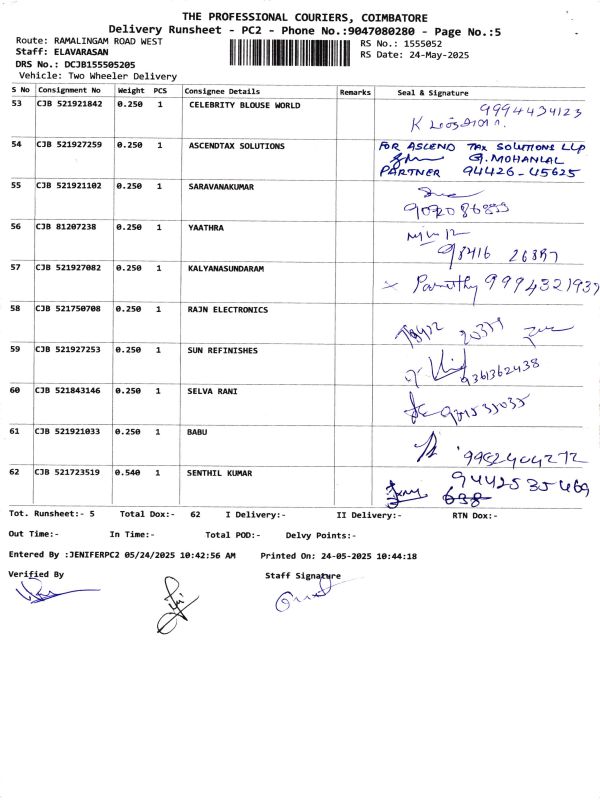 THE PROFESSIONAL COURIERS, COIMBATORE
Delivery Runsheet - PC2 - Phone No.:9047080280 - Page No.:5
Route: RAMALINGAM ROAD WEST
RS No.: 1555052
Staff: ELAVARASAN
RS Date: 24-May-2025
DRS No.: DCJB155505205
Vehicle: Two Wheeler Delivery
S No Consignment No Weight PCS Consignee Details Remarks Seal & Signature
53 CJB 521921842 0.250 1 CELEBRITY BLOUSE WORLD 9994434123
54 CJB 521927259 0.250 1 ASCENDTAX SOLUTIONS FOR ASCEND TAX SOLUTIONS LLP
G. MOHANLAL
PARTNER 94426-45625
55 CJB 521921102 0.250 1 SARAVANAKUMAR
56 CJB 81207238 0.250 1 YAATHRA
98416
57 CJB 521927082 0.250 1 KALYANASUNDARAM
58 CJB 521750708 0.250 1 RAJN ELECTRONICS
59 CJB 521927253 0.250 1 SUN REFINISHES
9361362438
60 CJB 521843146 0.250 1 SELVA RANI
61 CJB 521921033 0.250 1 BABU
62 CJB 521723519 0.540 1 SENTHIL KUMAR
Tot. Runsheet:- 5 Total Dox:- 62 I Delivery:- II Delivery:- RTN Dox:-
Out Time:- In Time:- Total POD:- Delvy Points:-
Entered By :JENIFERPC2 05/24/2025 10:42:56 AM Printed On: 24-05-2025 10:44:18
Verified By Staff Signature